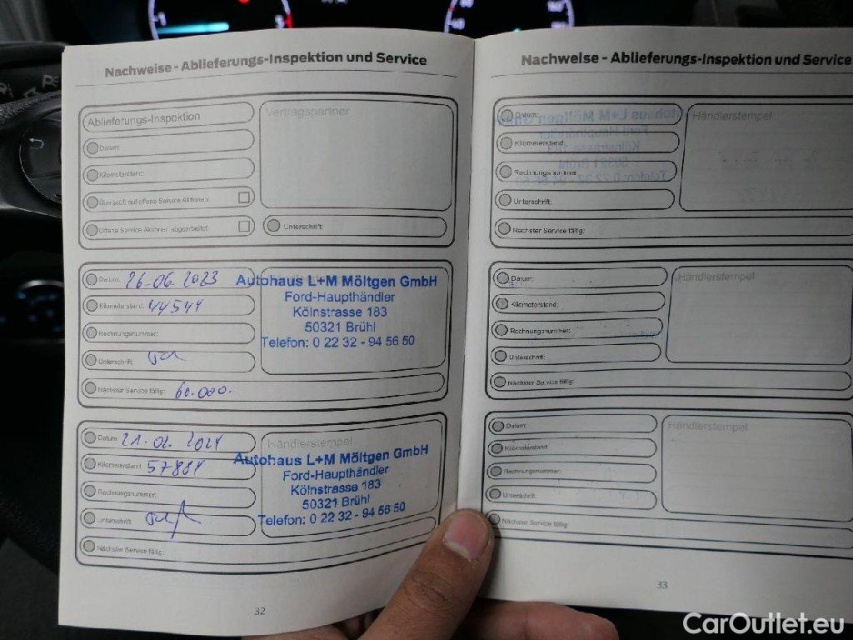 Nachweise - Ablieferungs-Inspektion und Service
Ablieferungs-Inspektion
Vertragspartner
Datum:
Kilometerstand:
Überprüft auf offene Service Aktionen:
Offene Service Aktionen abgearbeitet:
Unterschrift:
Datum: 26.06.2023
Kilometerstand: 44544
Rechnungsnummer:
Unterschrift:
Nächster Service fällig: 60.000.
Autohaus L+M Möltgen GmbH
Ford-Haupthändler
Kölnstrasse 183
50321 Brühl
Telefon: 0 22 32 - 94 56 50
Datum: 21.02.2024
Kilometerstand:
Rechnungsnummer:
Unterschrift:
Nächster Service fällig:
Händlerstempel
Autohaus L+M Möltgen GmbH
Ford-Haupthändler
Kölnstrasse 183
50321 Brühl
Telefon: 0 22 32 - 94 56 50
32
Nachweise - Ablieferungs-Inspektion und Service
Datum:
Kilometerstand:
Rechnungsnummer:
Unterschrift:
Nächster Service fällig:
Händlerstempel
Datum:
Kilometerstand:
Rechnungsnummer:
Unterschrift:
Nächster Service fällig:
Händlerstempel
Datum:
Kilometerstand:
Rechnungsnummer:
Unterschrift:
Nächster Service fällig:
Händlerstempel
33
CarOutlet.eu